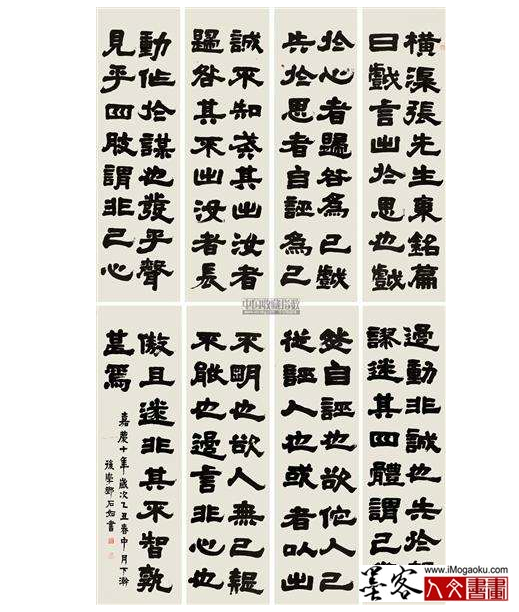 橫渠張先生東銘篇
曰戲言出於思也戲
於心者歸咎為己戲
失於思者自誣為己
誠不知戒其出汝者
歸咎其不出汝者長
動作於謀也發乎聲
見乎四肢謂非己心
過動非誠也失於聲
謬迷其四體謂己當
然自誣也欲佗人己
從誣人也或者以出
不明也欲人無己疑
不能也過言非心也
傲且遂非其不智孰
甚焉
嘉慶十年歲次乙丑春中月下澣
後學鄧石如書
中国收藏指数
墨客
www.iMogaoku.com
人文書畫